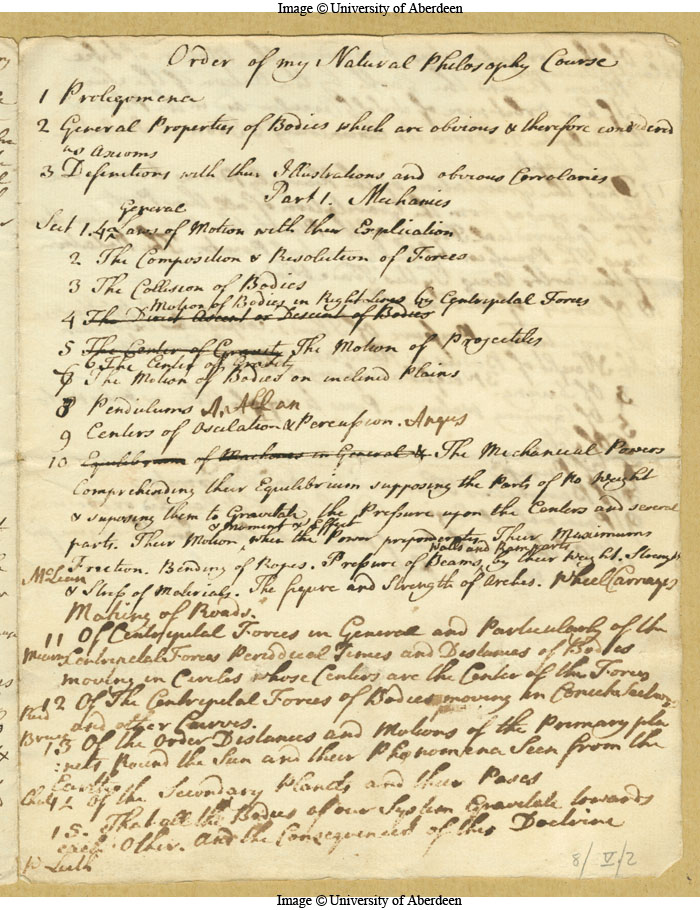 Image © University of Aberdeen
Order of my Natural Philosophy Course
1 Prolegomena
2 General Properties of Bodies which are obvious & therefore considered
as Axioms
3 Definitions with their Illustrations and obvious Corrolaries
Part 1. Mechanics
General
Sect 1. Laws of Motion with their Explication
2 The Composition & Resolution of Forces
3 The Collision of Bodies
Motion of Bodies in Right Lines by Centripetal Forces
4 The Direct Ascent or Descent of Bodies
5 The Center of Gravity The Motion of Projectiles
6 The Center of Gravity
The Motion of Bodies on inclined Plains
8 Pendulums A. Allan
9 Centers of Osculation & Percussion. Angus
10 Equilibrium of Machines in General & The Mechanical Powers
Comprehending their Equilibrium supposing the Parts of no Weight
& suposing them to Gravitate, the Pressure upon the Centers and several
& moment & Effect
parts. Their Motion when the Power preponderates Their Maximums
Walls and Ramparts
Friction. Bending of Ropes. Pressure of Beams by their Weight. Strength
McLean
& Stress of Materials. The figure and Strength of Arches. Wheel Carrages
Making of Roads.
11 Of Centripetal Forces in General and Particularly of the
Centripetal Forces Periodical Times and Distances of Bodies
moving in Circles whose Centers are the Center of the Forces
12 Of The Centripetal Forces of Bodies moving in Conick Sections
Reid
and other Curves.
Bruce
13 Of the Order Distances and Motions of the Primary pla
nets Round the Sun and their Phenomena Seen from the
Earth
14 Of the Secondary Planets and their Phases
15. That all the Bodies of our System Gravitate towards
each Other. And the Consequences of this Doctrine
W Leith
8/V/2
Image © University of Aberdeen